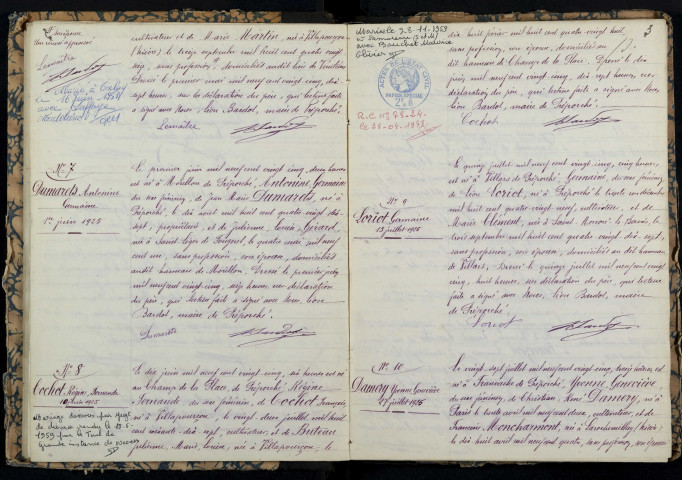 cultivateur et de Marie Martin, née à Villapourçon
(Nièvre) le treize septembre mil huit cent quatre vingt
sans profession, domiciliés audit lieu de
mai mil neuf cent vingt cinq, dix
sept heures, sur la déclaration du père, qui lecture faite
a signé avec Nous, Léon Bardot, maire de Préporché.
Lemaitre
Lemaitre
Marié à
le 16 juin 1951
avec
N° 7
Dumarets Antonine
Germaine
1er juin 1925
Le premier juin mil neuf cent vingt cinq, deux heures
est née à Morillon de Préporché, Antonine Germaine
du sexe féminin, de Jean Marie Dumarets, né à
Préporché, le dix août mil huit cent quatre vingt dix
sept, propriétaire, et de Julienne, Louise Girard,
née à Saint Léger de Fougeret, le quatre mai mil neuf
cent un, sans profession, son épouse, domiciliés
audit hameau de Morillon. Dressé le premier juin
mil neuf cent vingt cinq, seize heures, sur déclaration
du père, qui lecture faite a signé avec Nous, Léon
Bardot, maire de Préporché.
Dumarets
N° 8
Cochot Régine, Fernande
10 juin 1925
Mariage dissous par jugt
de divorce rendu le
1959 par le Trib. de
Grande instance de Nevers
Le dix juin mil neuf cent vingt cinq, six heures est née
au Champ de la Place, de Préporché, Régine
Fernande du sexe féminin, de Cochot François
né à Villapourçon, le vingt deux juillet mil huit
cent soixante dix sept, cultivateur, et de Buteau
Julienne, Marie, Louise, née à Villapourçon, le
3
Mariée le 28-11-1959
avec Bauchet Maurice
Olivier
ACTES DE L'ÉTAT CIVIL
PAPIER SPÉCIAL
R.C. N°
dix huit
mil huit cent quatre vingt huit,
sans profession, son épouse, domiciliés au
dit hameau de Champ de la Place. Dressé le dix
juin mil neuf cent vingt cinq, dix sept heures, sur
déclaration du père, qui lecture faite a signé avec Nous,
Léon Bardot, maire de Préporché.
Cochot
N° 9
Loriot Germaine
15 juillet 1925
Le quinze juillet mil neuf cent vingt cinq, cinq heures,
est née à Villars de Préporché, Germaine, du sexe féminin
de Léon Loriot, né à Préporché le trente un décembre
mil huit cent quatre vingt neuf, cultivateur, et de
Marie Clément, née à Saint Honoré les Bains, le
trois septembre mil huit cent quatre vingt dix sept,
sans profession, son épouse, domiciliés au dit hameau
de Villars, Dressé le quinze juillet mil neuf cent vingt
cinq, huit heures, sur déclaration du père, qui lecture
faite a signé avec Nous, Léon Bardot, maire
de Préporché.
Loriot
N° 10
Damery Yvonne Geneviève
27 juillet 1925
Le vingt sept juillet mil neuf cent vingt cinq, treize heures est
née à Franciache de Préporché, Yvonne, Geneviève,
du sexe féminin, de Christian, René Damery, né à
Paris le trente avril mil neuf cent deux, cultivateur, et de
Françoise Moncharmont, née à Larochemillay (Nièvre)
le dix huit avril mil neuf cent quatre, sans profession, son épouse